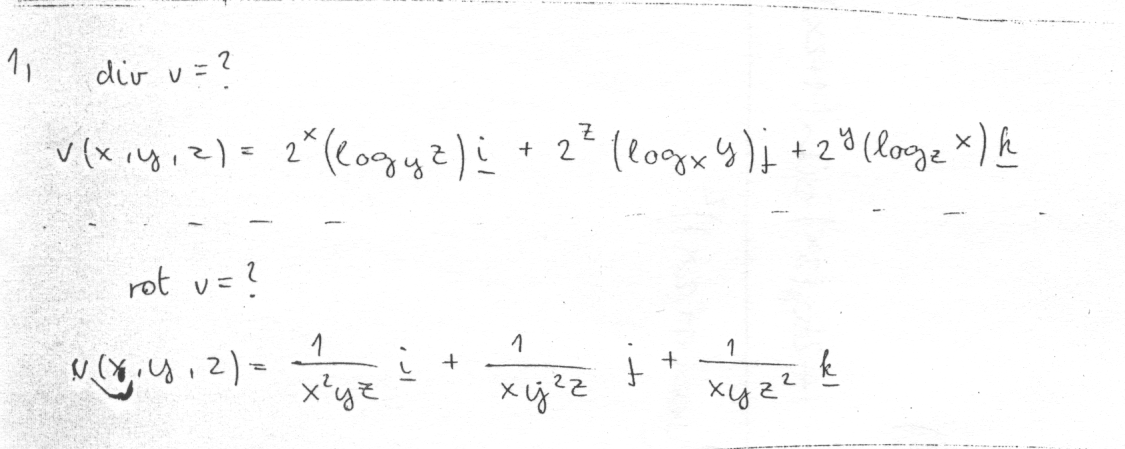 1, div v = ?
v(x, y, z) = 2^x (log_y z) i + 2^z (log_x y) j + 2^y (log_z x) k
rot v = ?
v(x, y, z) = 1/(x²yz) i + 1/(xy²z) j + 1/(xyz²) k